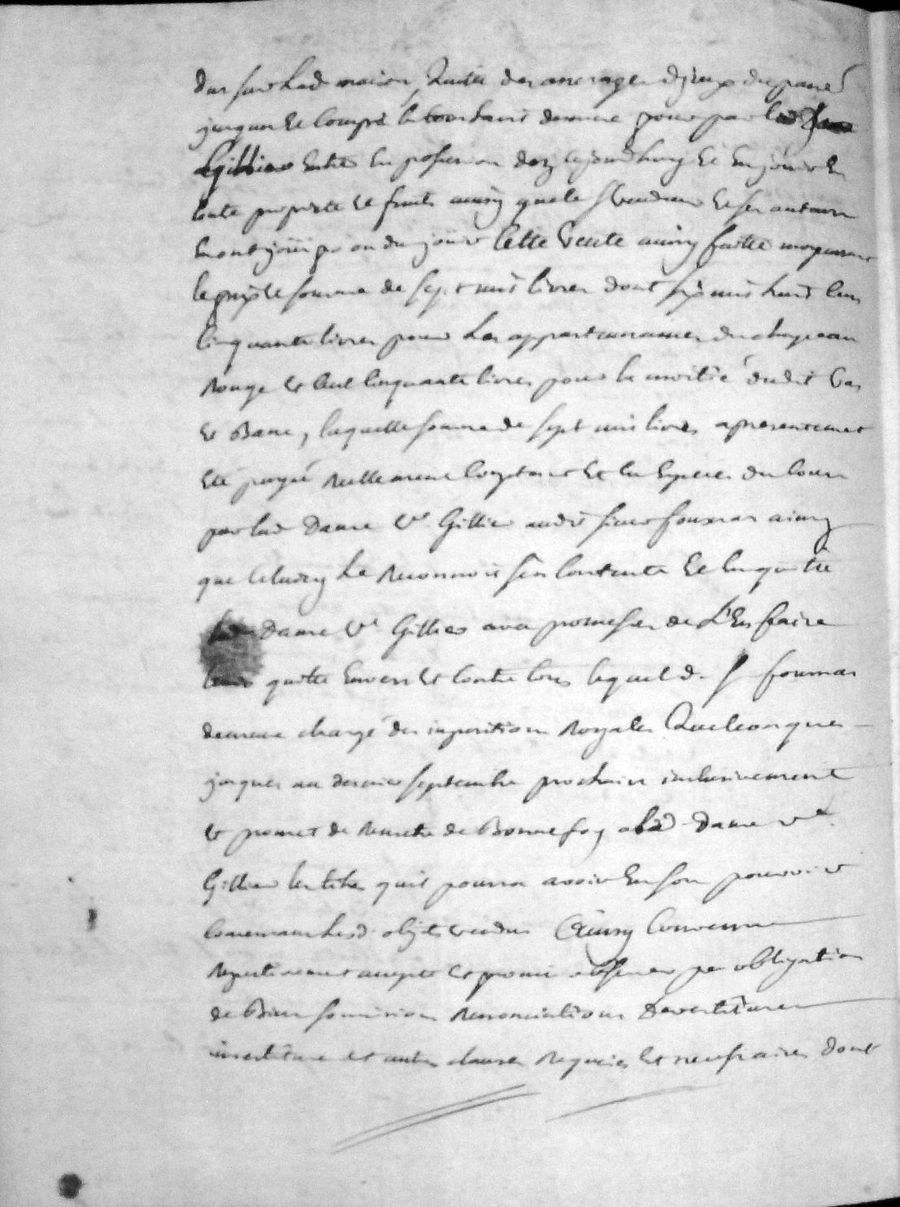 dus sur lad maison, Quitte des arrerages d'jceux du passé
jusques Et Compris la toussaint derniere pour par lad Dame
Gillier Entrer En possession dez cejourdhuy Et En jouir En
toute proprieté et fruits ainsy que le Sr vendeur Et ses auteurs
En ont joüi pû ou dû joüir Cette Vente ainsy faitte moyennant
le prix Et somme de sept mil livres dont six mil huit Cens
Cinquante livres pour Les appartenances du chapeau
Rouge et Cent Cinquante livres pour la moitié dudit
et Banc, laquelle somme de sept mil livres a presentement
Eté payé Réellement Comptant Et En Especes du Cours
par lad Dame Ve Gillier audit sieur fournas ainsy
que Celuicy Le Reconnoit s'en Contente Et En quitte
lad Dame Ve Gillier avec promesses de L'En faire
tenir quitte Envers Et Contre tous lequel d. Sr fournas
demeure chargé des impositions Royales Quelconques
jusques au dernier septembre prochain inclusivement
et promet de Remettre de Bonne foy a lad. Dame ve.
Gillier les titres qu'il pourra avoir En son pouvoir
Concernant lesd. objets vendus Ce ainsy Convenu
Respectivement accepté Et promis observer par obligation
de Biens soumissions Renonciations Devestitures
investiture et autres clauses Requises Et necessaires dont